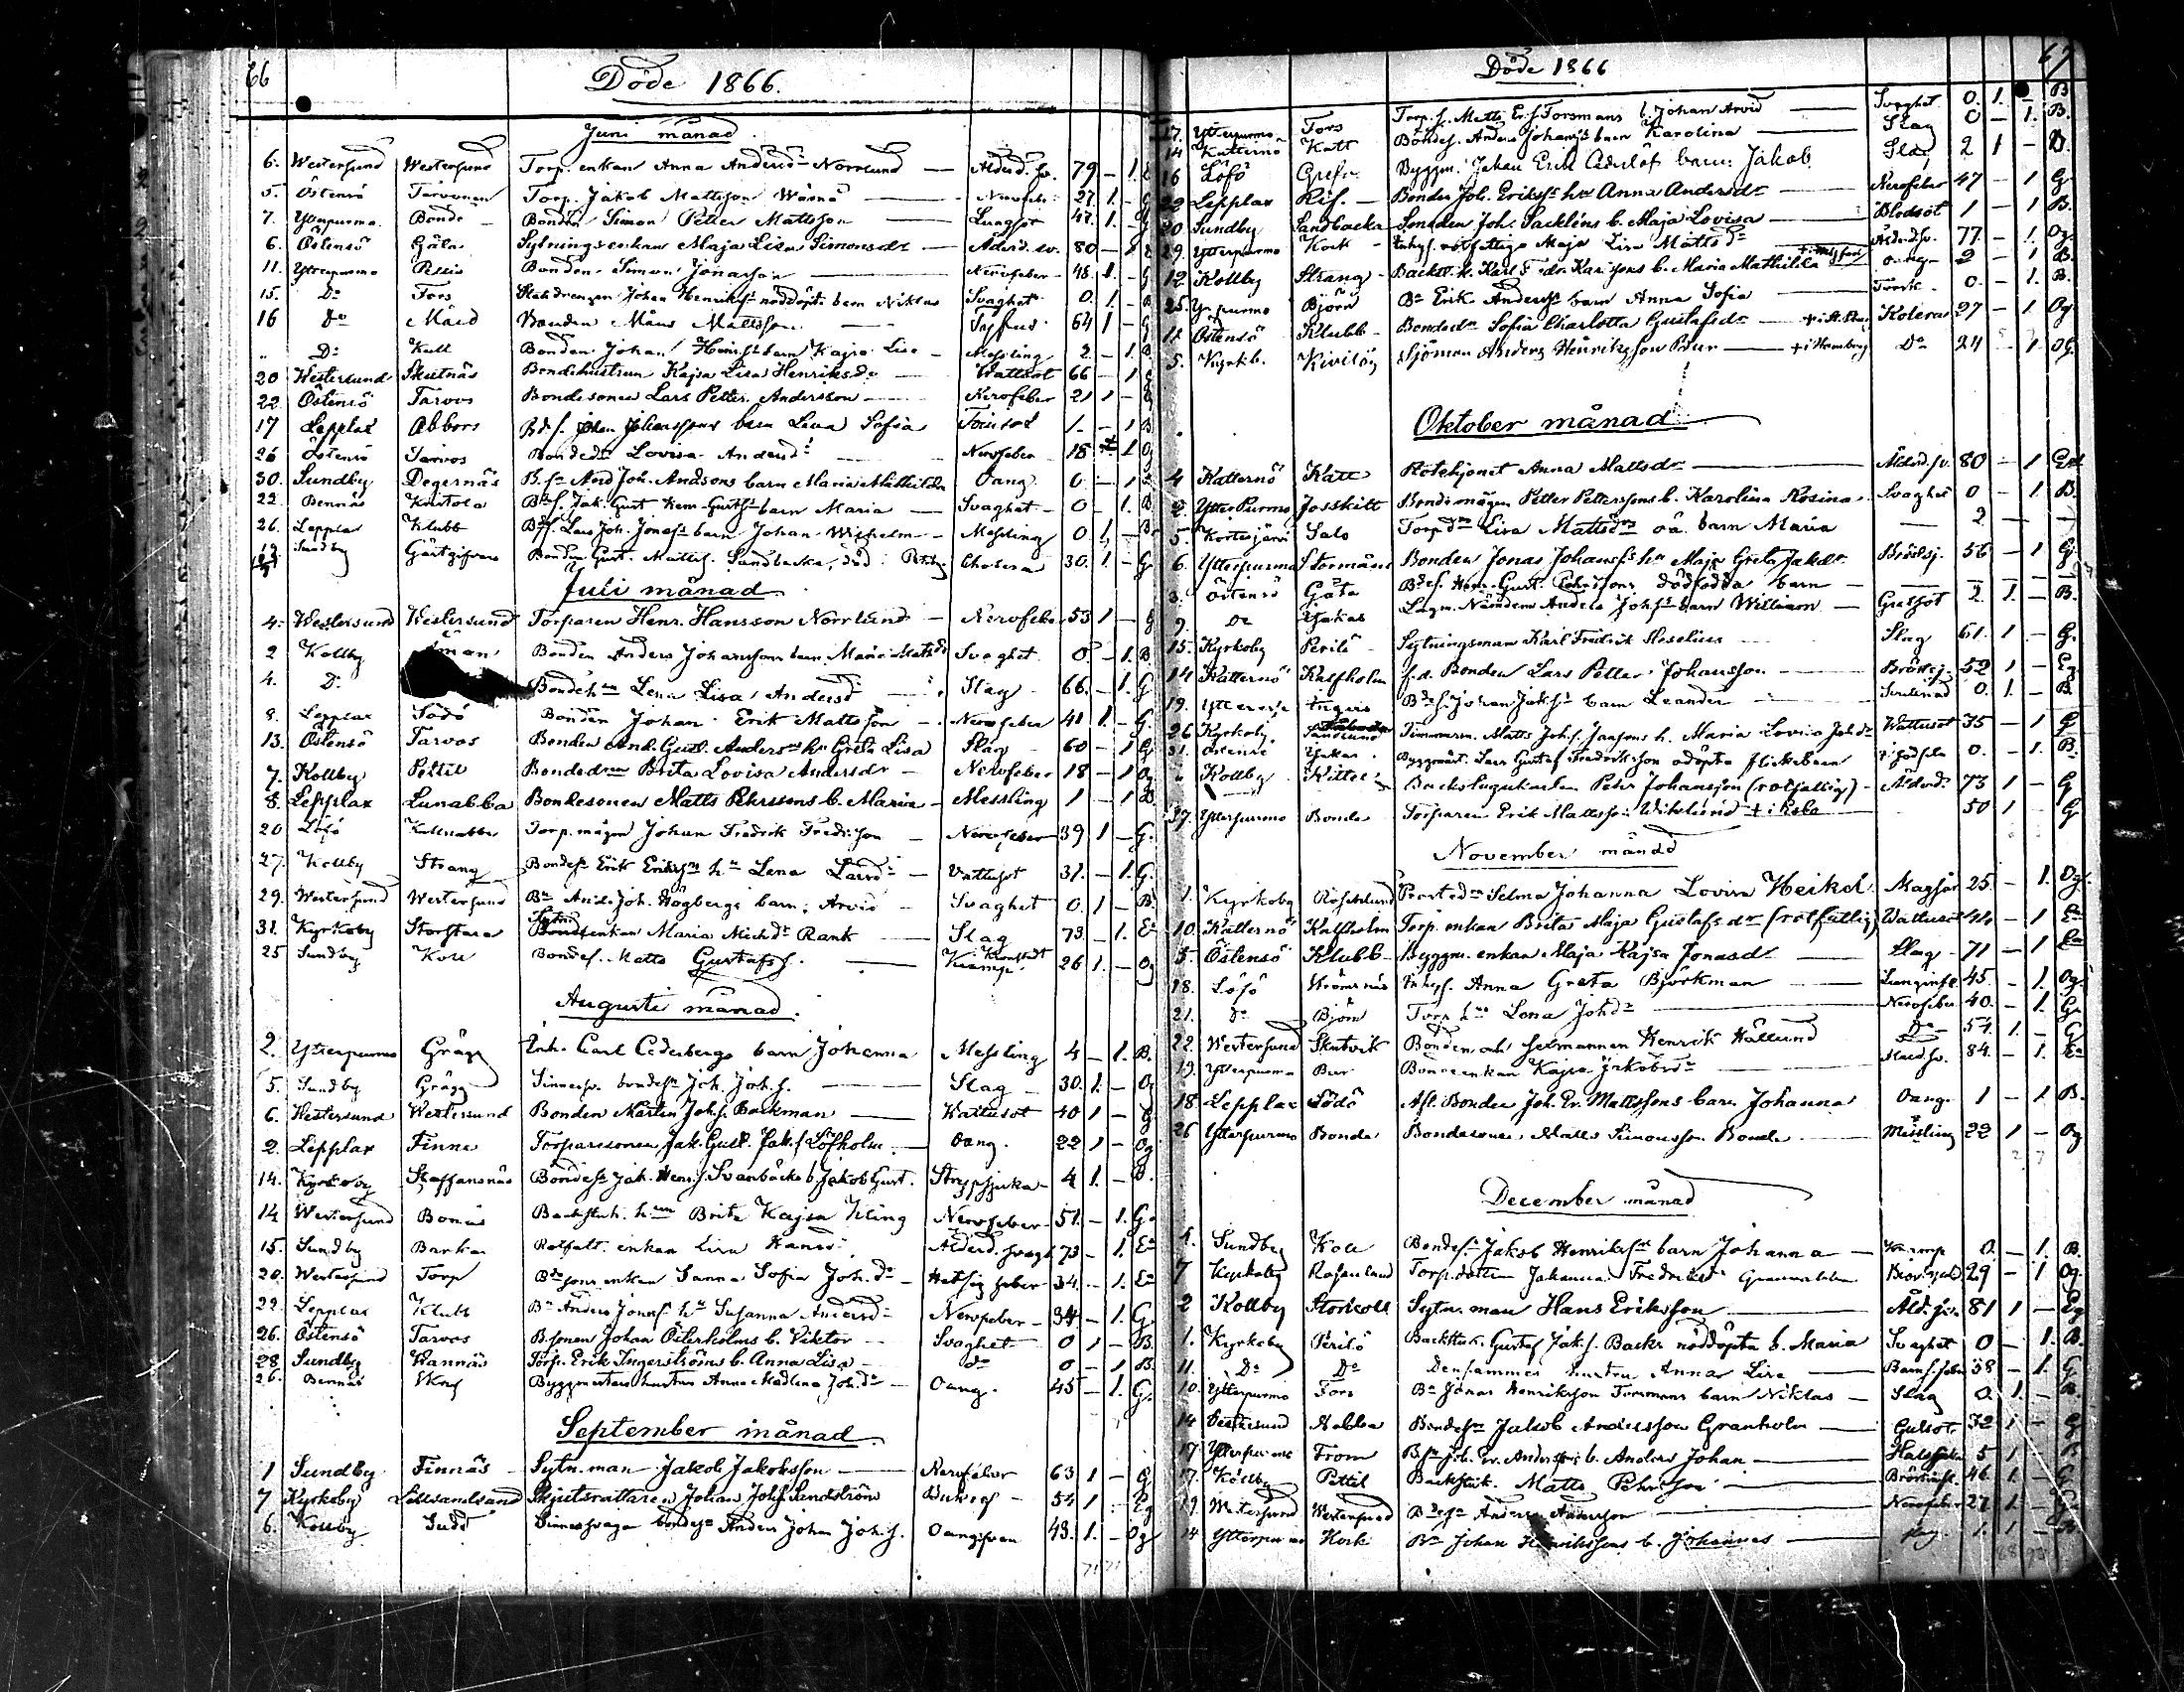 66
Döde 1866.
Juni månad
6. Westersund Westersund Torp. enkan Anna Andersdr Norrlund — Ålderd. sv. 79 – 1. E
5. Östensö Tarvonen Torp. Jakob Mattsson Wärnå — Nervfeber 27. 1. – G
7. Ytterpurmo Bonde Bonden Simon Petter Mattsson — Lungsot 47. 1. – G
6. Östensö Gäta Sytningsenkan Maja Lisa Simonsdr — Ålderd. sv. 80 – 1 E
11. Ytterpurmo Pellis Bonden Simon Jonasson — Nervfeber 48. 1. – G
15. Do Fors Johan Henrikss nöddöpt. barn Niklas Svaghet 0. 1. – B
16 Do Mård Bonden Måns Mattsson — Tyfus 64 1 – G
" Do Kull Bonden Johan Henrikss barn Kajsa Lisa – Messling 2. – 1. B.
20 Westersund Skutnäs Bondehustrun Kajsa Lisa Henriksdr — Wattsot 66 – 1 G
22. Östensö Tarvos Bondesonen Lars Petter Andersson — Nervfeber 21 1 – G
17 Lepplax Abbors Bds. Johan Johanssons barn Lena Sofia Tvinsot 1. – 1 B
26 Östensö Tarvos Bondedr Lovisa Andersd — Nervfeber 18 – 1 Og
30. Sundby Degernäs B. sn And. Joh. Andsons barn Maria Mathilda Oang. 0. – 1 B
22. Bennäs Knutola Bds. Jak. Gust. Henr. Gustfs barn Maria — Svaghet – 0 – 1. B
26. Lepplax Klubb Bds. Lars Joh. Jonass barn Johan Wilhelm — Messling 0 1. – B
Sundby Gästgifvars Bonden Gust. Mattss. Sandbacka, död i Petbg. Cholera 30. 1. – G
Juli månad
4. Westersund Westersund Torparen Henr. Hansson Norrlund — Nervfeber 53 1 – G
2 Kollby Bonden Anders Johanssons barn Maria Mathda Svaghet 0. – 1. B.
4. Do Bondehn Lena Lisa Andersd — Slag – 66. – 1. G
8. Lepplax Södö Bonden Johan Erik Mattsson — Nervfeber 41 1. – G
13. Östensö Tarvos Bonden And. Gust. Anderss hu Greta Lisa Slag – 60 – 1 G
7. Kollby Pettil Bondedrn Brita Lovisa Andersdr — Nervfeber 18 – 1 Og
8. Lepplax Lunabba Bondesonen Matts Pehrssons b. Maria – Messling 1 – 1 B
20 Löfö Torp. mågen Johan Fredrik Fredrsson — Nervfeber 39 1 – G.
27. Kollby Strang Bondes. Erik Erikss hu Lena Larsd — Vattusot 31. – 1. G.
29. Westersund Westersund Bn And. Joh. Högbergs barn Arvid — Svaghet 0. 1 – B.
31. Kyrkoby Storstara Sytn. enkan Maria Michdr Rank — Slag 73. – 1. En
25 Sundby Koll Bondes. Matts Gustafss. — Kramp. Kronstadt 26 1. – Og
Augusti månad.
2. Ytterpurmo Grägg Inh. Carl Cederbergs barn Johanna Messling 4 – 1. B.
5. Sundby Grägg Sinnessv. bondesn Joh. Joh.s. — Slag – 30. 1. – Og
6. Westersund Westersund Bonden Martin Johs. Backman — Wattusot 40 1 – G
2. Lepplax Finne Torparesonen Jak. Gust. Jak.s. Löfholm — Oang. 22 1 – Og
14. Kyrkoby Staffansnäs Bondesn Jak. Henr.s. Svanbäcks b. Jakob Gust. Strypsjuka 4 1. – B.
14 Westersund Bonäs Backstuh. hun Brita Kajsa Kling Nervfeber 51. – 1. G.
15. Sundby Backa Rotfatt. enkan Lisa Hansd Ålderd. svagh 73 – 1. En
20. Westersund Torp Bdesons enkan Sanna Sofia Joh.dr — Hetsig feber 34. – 1. En
22. Lepplax Klubb Bn Anders Jonass hu Susanna Andersd — Nervfeber – 34 – 1. G
26. Östensö Tarvos B.sonen Johan Österholms b. Viktor — Svaghet 0 1 – B.
28. Sundby Wannäs Torp. Erik Ingerströms b. Anna Lisa — do 0 – 1 B.
26. Bennäs Byggmästars hustru Anna Madlena Joh.dr — Oang. 45 – 1. G.
September månad.
1 Sundby Finnäs Sytn. man Jakob Jakobsson — Nervfeber 63 1 – G
7 Kyrkoby Lillsandsund Skjutsrättaren Johan Johss. Sundström Bukref – 54 1 – Eg
6. Kollby Sudd Sinnessvaga bondesn Anders Johan Joh.s. Oangifven 43. 1. – Og
67
Döde 1866
17. Ytterpurmo Fors Torp.s. Matts Er.s Forsmans b. Johan Arvid — Svaghet 0. 1. – B
14 Katternö Katt Bondes. Anders Johanss barn Karolina — Slag 0 – 1. B.
16 Löfö Byggm. Johan Erik Cederlöf barn Jakob Slag 2 1 – B.
22 Lepplax Rif. Bonden Joh. Erikss hu Anna Andersdr — Nervfeber 47 – 1 G
20 Sundby Sandbacka Smeden Joh. Sacklins b. Maja Lovisa — Blodsot 1 – 1 B.
29. Ytterpurmo Kock Inhys. rotfattiga Maja Lisa Mattsdr — Ålderd. sv. 77. – 1. Og.
12. Kollby Strang Backst. k. Karl Fredr. Karlssons b. Maria Mathilda oang. 2 – 1 B.
25. Yt. purmo Björn Bn Erik Anderss barn Anna Sofia — Torsk 0. – 1. B.
11 Östensö Klubb Bondedr Sofia Charlotta Gustafsdr — Kolera 27 – 1 Og
5. Kyrkb. Kivilös Sjöman Anders Henriksson Brur — + i Hamburg Do 24 1 OG.
Oktober månad
4 Katternö Katt Rotehjonet Anna Mattsdr — Ålderd. sv. 80 – 1 En
2. Ytter Purmo Josskitt Bondemågen Petter Petterssons b. Karolina Rosina. Svaghet 0 – 1. B.
5. Kortesjärvi Salo Torp.dn Lisa Mattsdrs oä. barn Maria — 2 —
6. Ytterpurmo Stormåns Bonden Jonas Johanss hu Maja Greta Jakdr Bröstsj. 56 – 1 G.
3. Östensö Gäta Bdes. Henr. Gust. dödfödda barn — — — —
9. Do Jakas Lagm. Nämndem Anders Johss barn William — Gratsjot 2. 1. – B.
15. Kyrkoby Perilö Sytningsman Karl Fredrik Hoselius — Slag 61. 1 – G.
14 Katternö Kalfholm f.d. Bonden Lars Petter Johansson — Bröstsj. 52 1 – Eg
19. Ytteresse Ingvis Bdes. Johan Jakss barn Leander — 0. 1. – B.
26 Kyrkoby. Timmerm. Matts Joh.s. Jansons h. Maria Lovisa Johdr Wattusot 35 – 1 G
31. Östensö Jakas Byggmäst. Lars Gustaf Fredriksson odöpta flickebarn 0. – 1. B.
" Kollby Wittick Backstugukarlen Pehr Johansson (rotfattig) — Ålderd. 73 1 – G
27. Ytterpurmo Bonde Torparen Erik Mattsson Wiklund + i Esbo 50 1 G
November månad
1. Kyrkoby Rosenlund Prostedrn Selma Johanna Lovisa Heikel Magsår 25. – 1. Og.
10. Katternö Kalfholm Torp. enkan Brita Maja Gustafsdr (rotfattig) Wattusot 44 – 1 En
5. Östensö Klubb Byggm. enkan Maja Kajsa Jonasd — Slag – 71 – 1 En
18. Löfö Strömsnäs Inhys. Anna Greta Björkman — Lunginfl. 45. – 1. Og.
21. Do Björn Torp. hun Lena Johdr — Nervfeber 40. – 1. G.
22. Westersund Skutvik Bonden och sexmannen Henrik Hällund Do 57. 1. – G
19. Ytterpurmo Bur Bondeenkan Kajsa Jakobsdr — Ålderd. sv. 84. – 1. En
18 Lepplax Södö Afl. Bonden Joh. Er. Mattssons barn Johanna Oang. 1 – 1 B.
26 Ytterpurmo Bonde Bondesonen Matts Simonsson Bonde — Messling 22 1 – Og
December månad
4. Sundby Koll Bondes. Jakob Henrikss barn Johanna — Kramp 0. – 1. B.
7 Kyrkoby Rosenlund Torp.dottren Johanna Fredriksd 29 – 1 Og.
2 Kollby Storkoll Sytn. man Hans Eriksson — Åld. sv. 81 1 – Eg
1. Kyrkoby Perilö Backstuk. Gustaf Jak.s. Backs nöddöpta b. Maria Svaghet 0 – 1. B.
11. Do Do Densammes hustru Anna Lisa — Barns.feber 38 – 1. G
10. Ytterpurmo Fors Bn Jonas Henriksson Forsmans barn Niklas — Slag 0. 1. – B.
14 Westersund Abbba Bondesn Jakob Andersson Granholm — Gulsot 32 1 – G
17. Ytterpurmo From Bsn Joh. Er. Anderssons b. Anders Johan — 5 1 B
17. Kollby Pettil Backstuk. Matts Pehrsson — 46 1. G
19. Westersund Westersund Bdesn Anders Andersson — Nervfeber 27 1. –
14 Ytterpurmo Kock Bn Johan Henrikssons b. Johannes — Slag 1. 1. – B